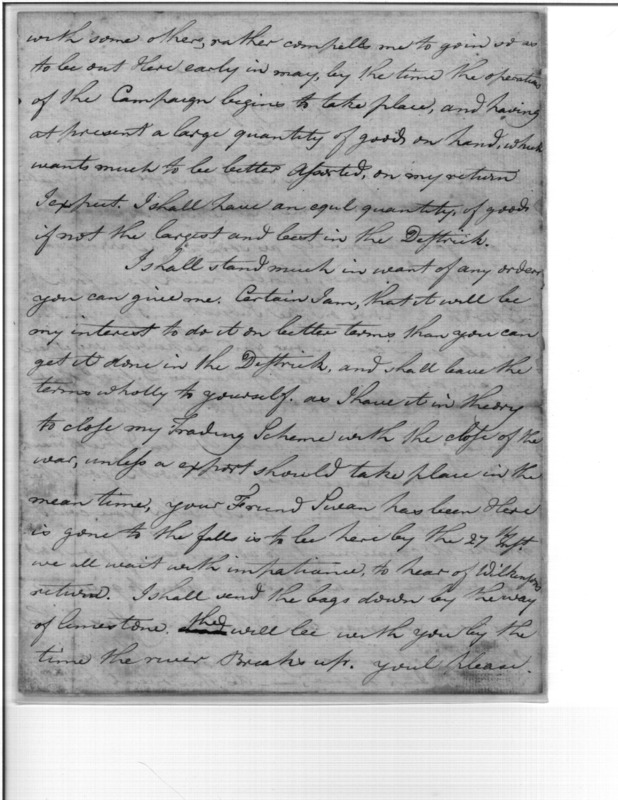 with some others, rather compells me to goin so as
to be out Here early in may, by the time the operations
of the Campaign begins to take place, and having
at present a large quantity of goods on hand, which
wants much to be better Assorted, on my return
I expect. I shall have an equl quantity, of goods
if not the largest and best in the Destrick.
I shall stand much in want of any orders
you can give me. Certain I am, that it will be
my interest to do it on better terms than you can
get it done in the Destrick, and shall leave the
terms wholly to yourself. as I have it in theory
to close my Trading Scheme with the close of the
war, unless a export should take place in the
mean time, your Friend Swan has been Here
is gone to the falls is to be here by the 27th Inst.
we all wait with impatiance, to hear of Wilkinsons
return. I shall send the bags down by the way
of limestone. they will be with you by the
time the river Breaks up. youl please.